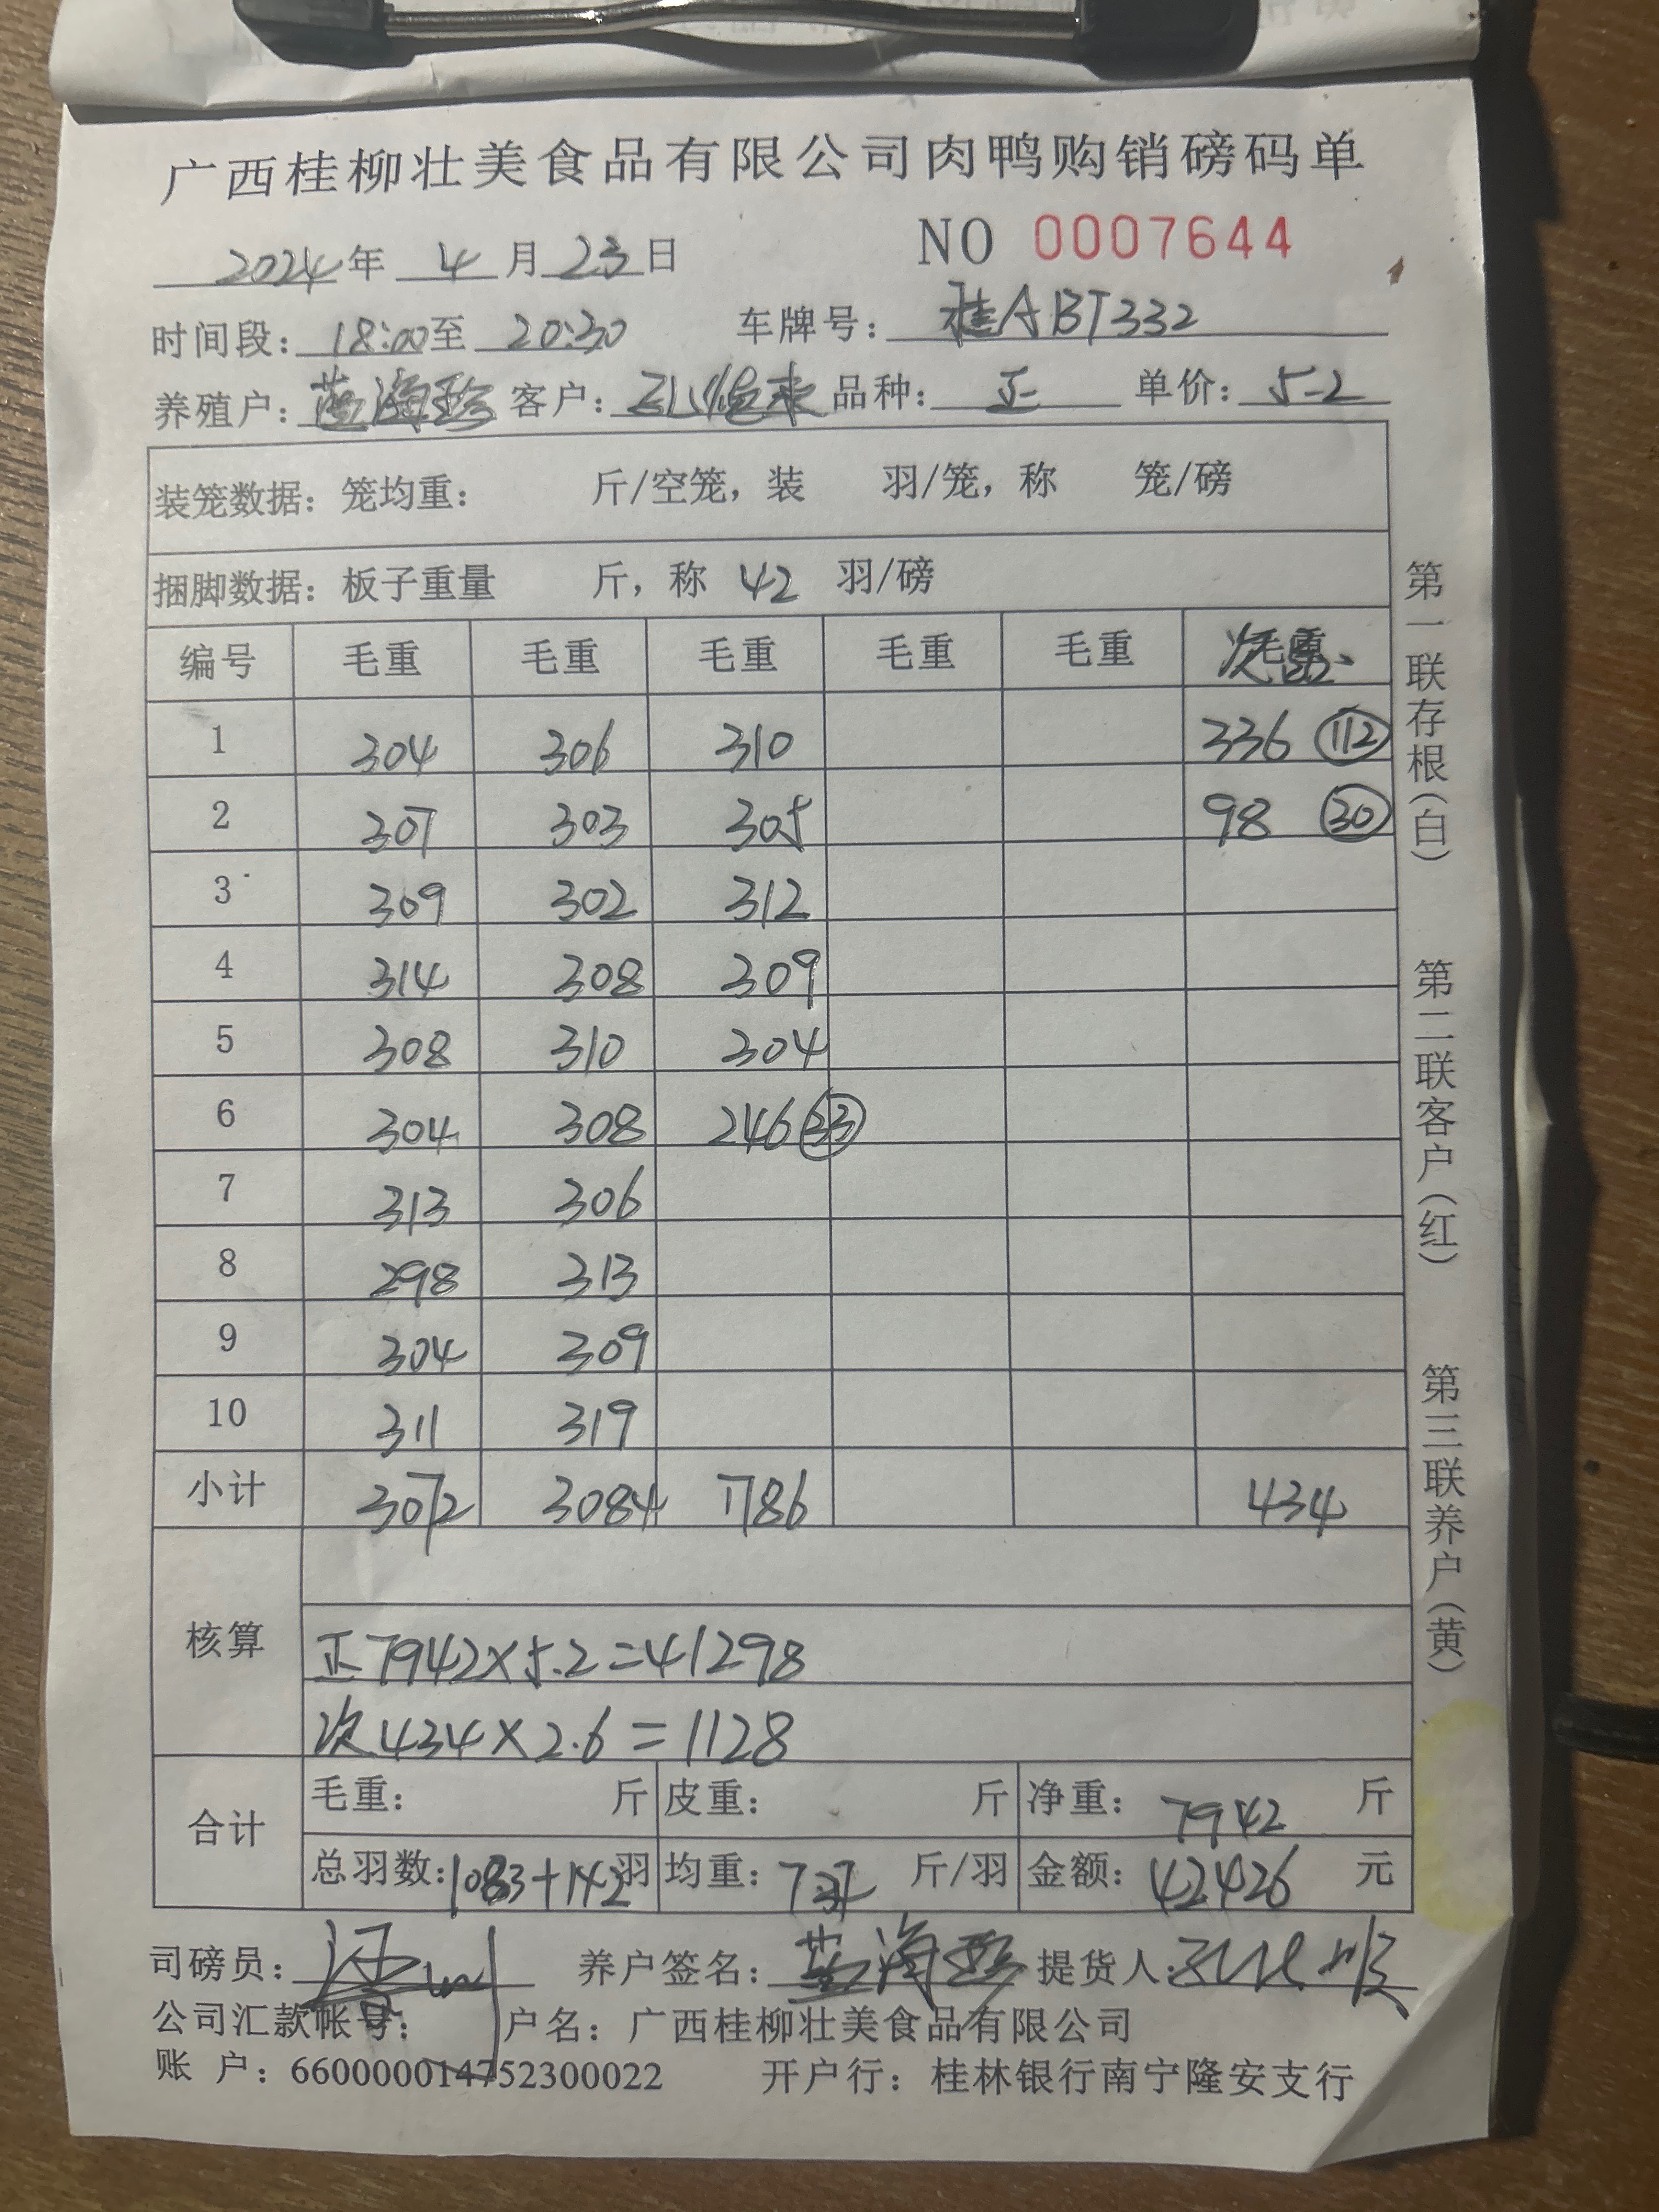 广西桂柳壮美食品有限公司肉鸭购销磅码单
2024年 4月23日 NO 0007644
时间段: 18:00至 20:30 车牌号: 桂ABT332
养殖户: 蓝海珍 客户: 品种: 正 单价: 5.2
装笼数据: 笼均重: 斤/空笼, 装 羽/笼, 称 笼/磅
捆脚数据: 板子重量 斤, 称 42 羽/磅
编号 毛重 毛重 毛重 毛重 毛重 毛重
1 304 306 310 336 112
2 307 303 305 98 30
3 309 302 312
4 314 308 309
5 308 310 304
6 304 308 246 33
7 313 306
8 298 313
9 304 309
10 311 319
小计 3072 3084 1786 434
核算
正7942×5.2=41298
次434×2.6=1128
合计
毛重: 斤 皮重: 斤 净重: 7942 斤
总羽数: 1083+142羽 均重: 斤/羽 金额: 42426 元
司磅员: 养户签名: 蓝海珍 提货人:
公司汇款帐号: 户名: 广西桂柳壮美食品有限公司
账 户: 660000014752300022 开户行: 桂林银行南宁隆安支行
第一联存根(白) 第二联客户(红) 第三联养户(黄)